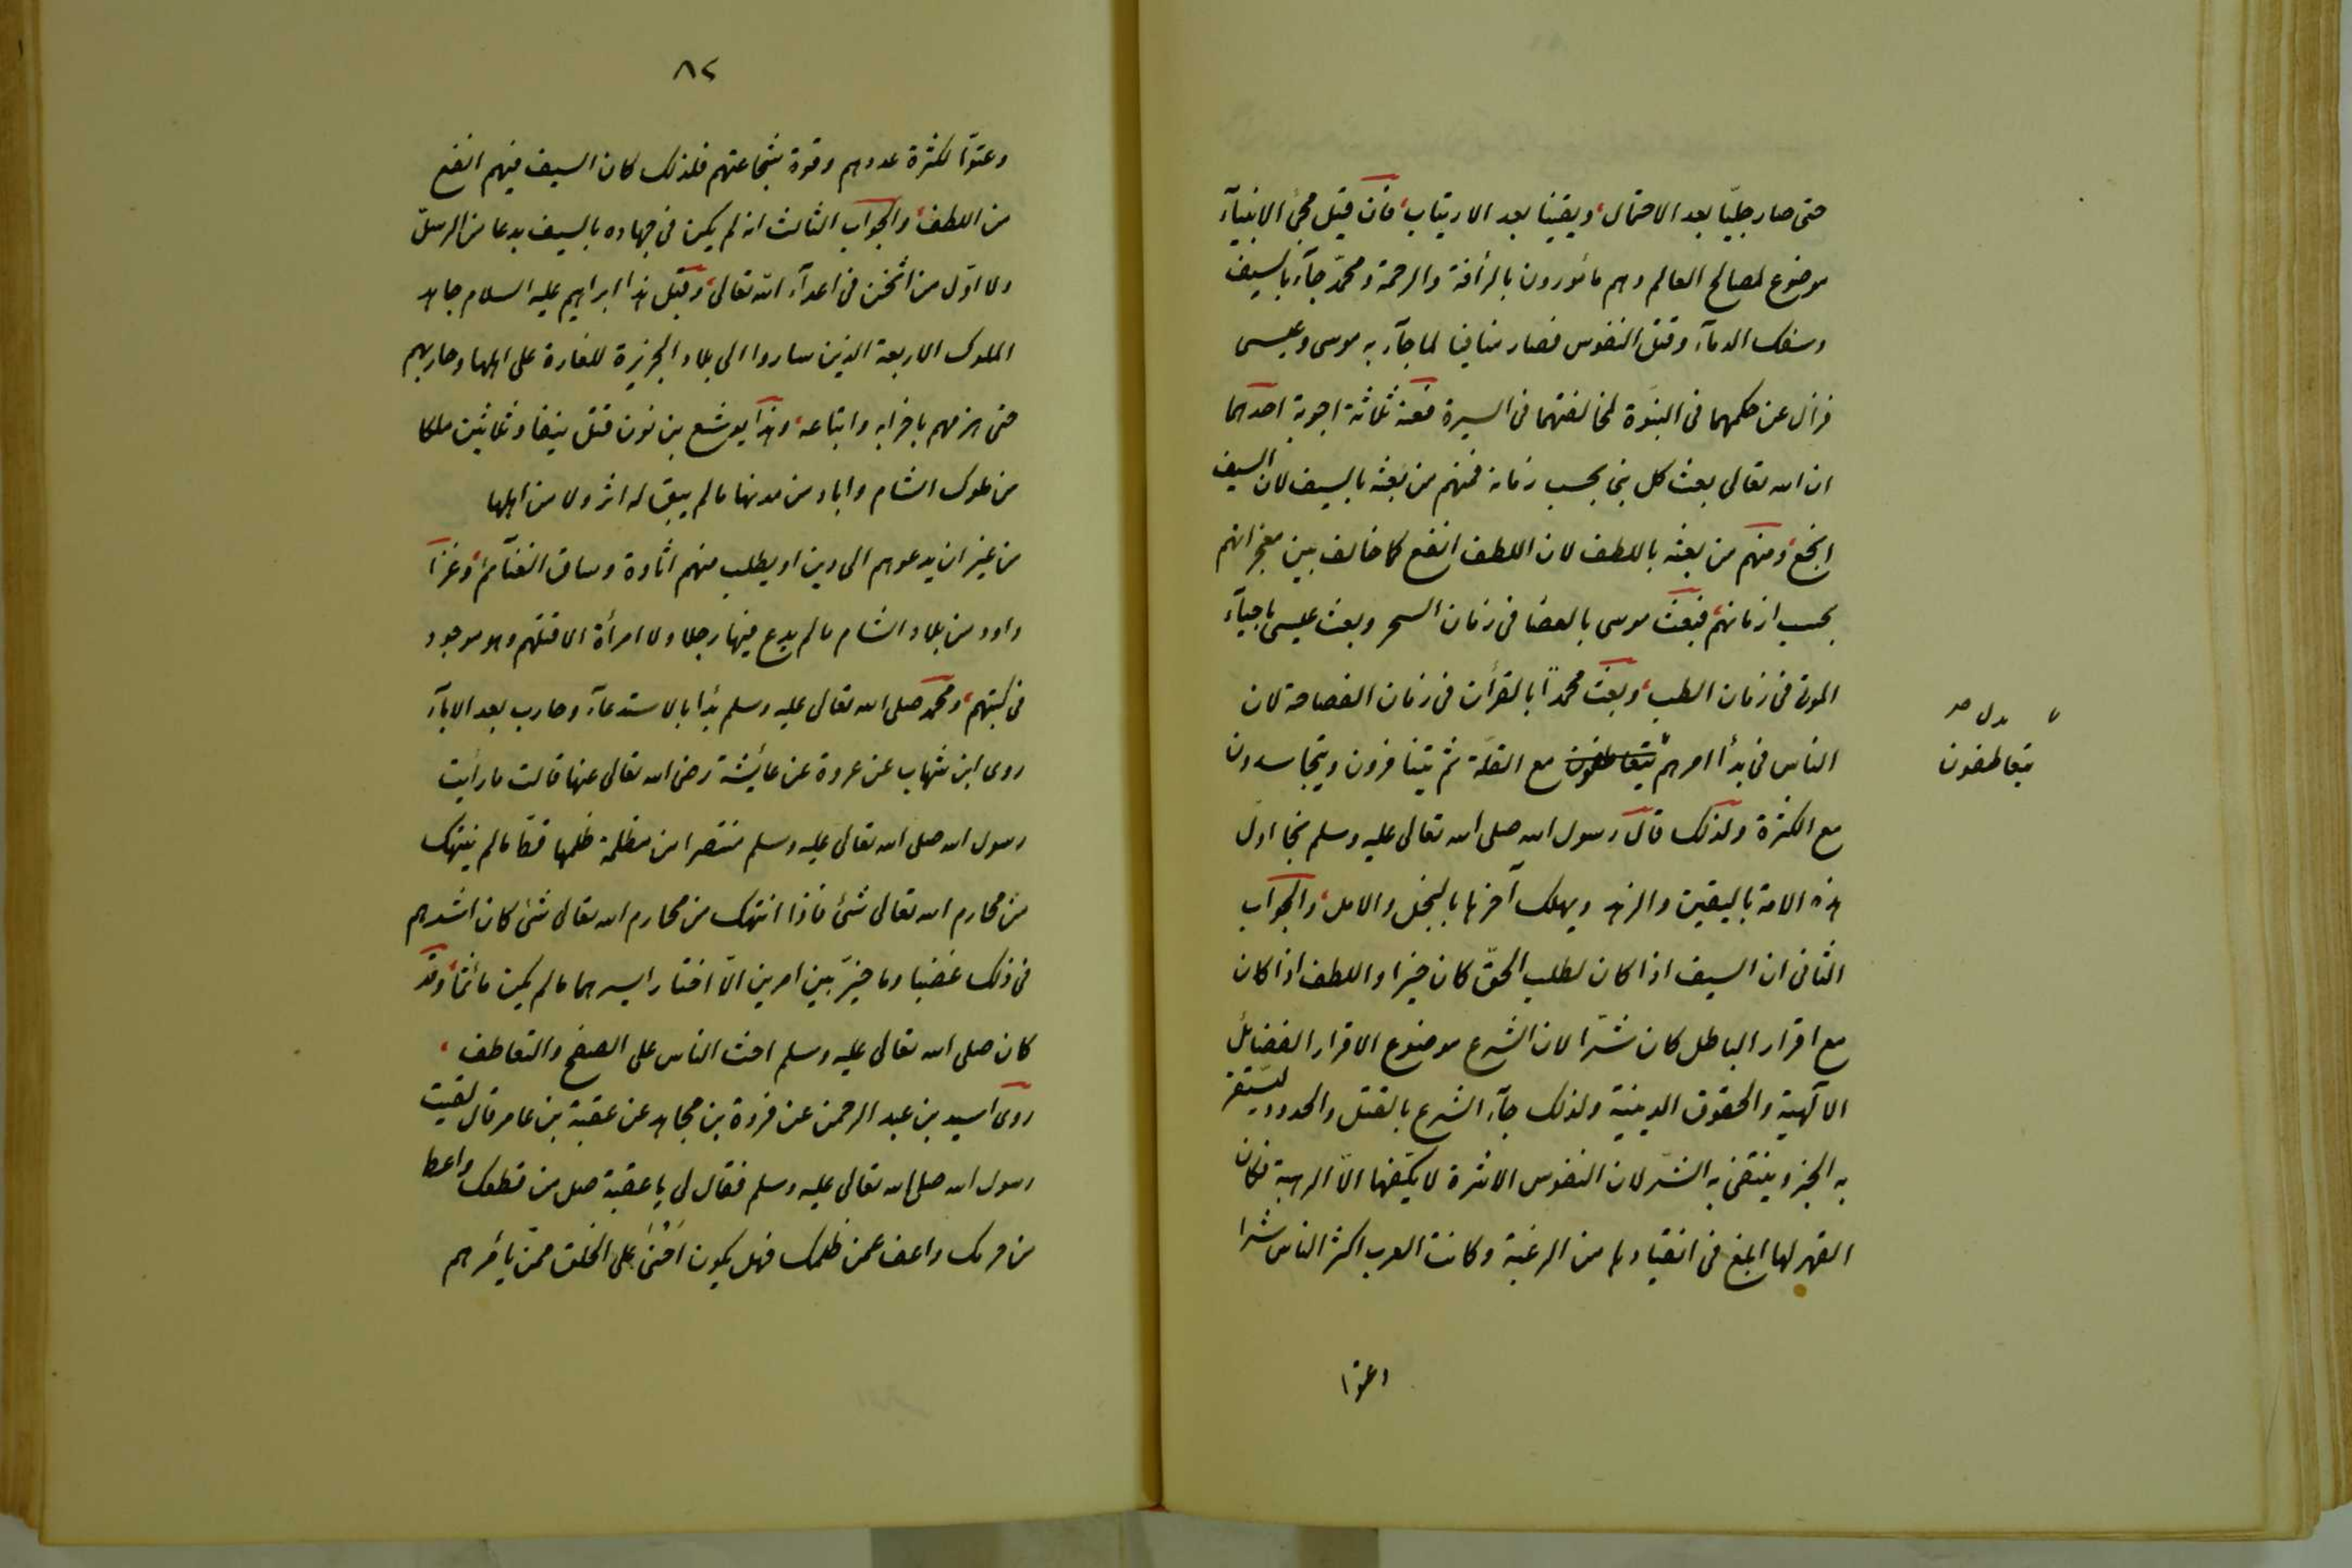 حتى صار جليّا بعد الاحتمال، ويقينا بعد الارتياب، فان قيل مجئ الانبيآء
موضوع لمصالح العالم وهم مأمورون بالرأفة والرحمة ومحمّد جآء بالسيف
وسفك الدمآء وقتل النفوس فصار منافيا لما جآء به موسى وعيسى
فزال عن حكمهما فى النبوّة لمخالفتهما فى السيرة فعنه ثلاثة اجوبة احدهما
ان الله تعالى بعث كل نبى بحسب زمانه فمنهم من بعثه بالسيف لان السيف
انجع، ومنهم من بعثه باللطف لان اللطف انفع كما خالف بين معجزاتهم
بحسب ازمانهم، فبعث موسى بالعصا فى زمان السحر وبعث عيسى باحيآء
الموتى فى زمان الطب، وبعث محمداً بالقرأن فى زمان الفصاحة لان
الناس فى بدأ امرهم يتعاطفون مع القلّة ثم يتنافرون ويتحاسدون
يتعاطفون
بدل صـ
مع الكثرة ولذلك قال رسول الله صلى الله تعالى عليه وسلم نجا اول
هذه الامة باليقين والزهد ويهلك آخرها بالبخل والامل، والجواب
الثانى ان السيف اذا كان لطلب الحقّ كان خيرا واللطف اذا كان
مع اقرار الباطل كان شرّا لان الشرع موضوع الاقرار الفضائل
الآلهية والحقوق الدينية ولذلك جآء الشرع بالقتل والحدود ليستقر
به الخير وينتفى به الشرّ لان النفوس الاشرة لا يكفّها الاّ الرهبة فكان
القهر لها ابلغ فى انقيادها من الرغبة وكانت العرب اكثر الناس شرا
وعتوا
٨٢
وعتوّا لكثرة عددهم وقوة شجاعتهم فلذلك كان السيف فيهم انفع
من اللطف، والجواب الثالث انه لم يكن فى جهاده بالسيف بدعا من الرسل
ولا اوّل من اثخن فى اعدآء الله تعالى، وقبل هذا ابراهيم عليه السلام جاهد
الملوك الاربعة الذين ساروا الى بلاد الجزيرة للغارة على اهلها وحاربهم
حتى هزمهم باحزابه واتباعه، وهذا يوشع بن نون قتل نيفا وثلاثين ملكا
من ملوك الشام واباد من مدنها ما لم يبق له اثر ولا من اهلها
من غير ان يدعوهم الى دين او يطلب منهم اتاوة وساق الغنآئم، وغزا
داود من بلاد الشام ما لم يدع فيها رجلا ولا امرأة الا قتلهم وهو موجود
فى كتبهم، ومحمد صلى الله تعالى عليه وسلم بدأ بالاستدعآء وحارب بعد الابآء
روى ابن شهاب عن عروة عن عائشة رضى الله تعالى عنها قالت ما رأيت
رسول الله صلى الله تعالى عليه وسلم منتصرا من مظلمة ظلمها قط ما لم ينتهك
من محارم الله تعالى شئ فاذا انتهك من محارم الله تعالى شئ كان اشدهم
فى ذلك غضبا وما خيّر بين امرين الاّ اختار ايسرهما ما لم يكن مأثما، وقد
كان صلى الله تعالى عليه وسلم احث الناس على الصفح والتعاطف،
روى اسيد بن عبد الرحمن عن فروة بن مجاهد عن عقبة بن عامر قال لقيت
رسول الله صلى الله تعالى عليه وسلم فقال لى يا عقبة صل من قطعك واعط
من حرمك واعف عمن ظلمك فهل يكون احنى على الخلق ممن يأمرهم